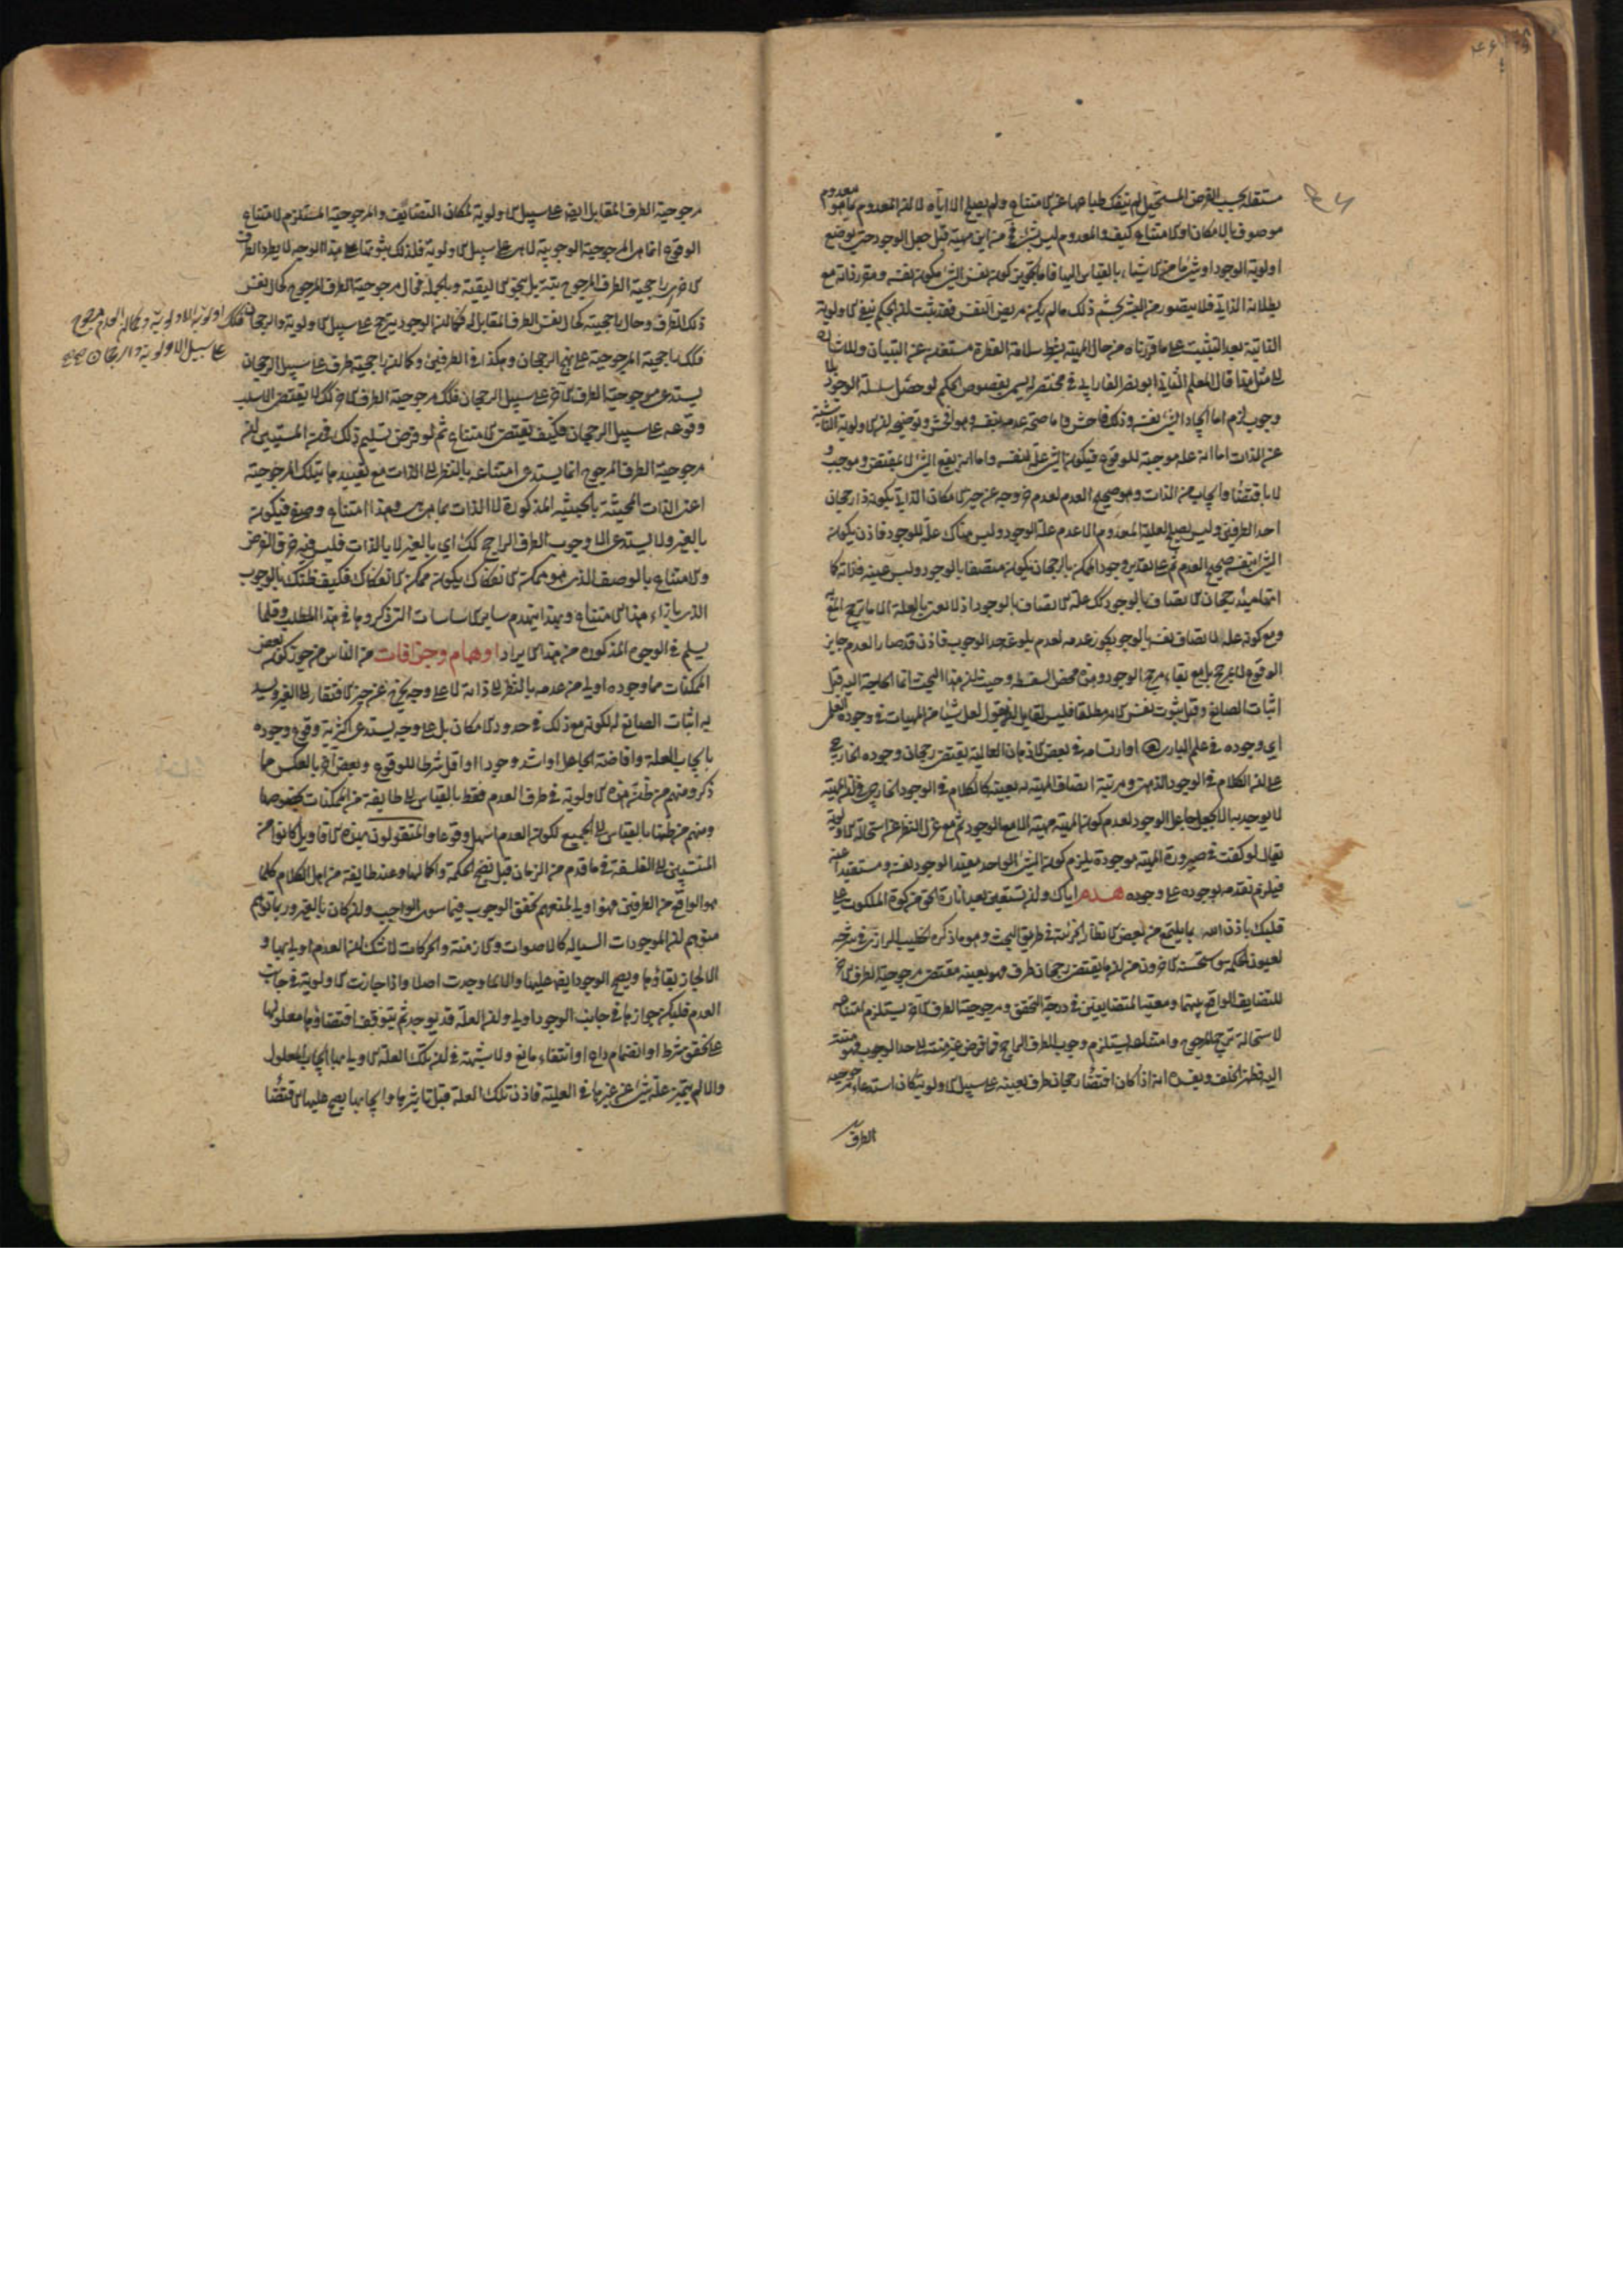 مستقلة بحسب الفرض المستحيل لم ينفك طباعها عن الامتناع ولم يصلح الا اياه لا ان المعدوم بما هو معدوم
موصوف بالامكان او الامتناع كيف والمعدوم ليس بشيء فمن اين مهية قبل جعل الوجود حتى يوضع
اولوية الوجود او شيء ما من الاشياء بالقياس اليها فاما تجويز كون نفس الشيء مكون نفسه ومقرر ذاته مع
بطلانه الذاتي فلا يتصور من البشر تجشم ذلك ما لم يكن مريض النفس فقد ثبت ان الحكم بنفي الاولوية
الذاتية بعد التثبيت على ما قررناه من حال المهية بشرط سلامة الفطرة مستغن عن التبيان وللاشارة
الى مثل هذا قال المعلم الثاني ابو نصر الفارابي في مختصر له يسمى بفصوص الحكم لو حصل سلسلة الوجود بلا
وجوب لزم اما ايجاد الشيء نفسه وذلك فاحش واما صحة عدمه بنفسه وهو افحش وتوضيحه ان الاولوية الناشئة
عن الذات اما انه علة موجبة للوقوع فيكون الشيء علة لنفسه واما انه يقع الشيء لا بمقتض وموجب
لا باقتضاء وايجاب من الذات وهو صحيح العدم لعدم خروجه عن حيز الامكان الذاتي يكون ذا رجحان
احد الطرفين وليس يصلح لعلية المعدوم الا عدم علة الوجود وليس هناك علة للوجود فاذن يكون
الشيء بنفسه صحيح العدم ثم على تقدير وجود الممكن بالرجحان يكون متصفا بالوجود وليس عينه فذاته كما
انها مبدء رجحان الاتصاف بالوجود كك علة الاتصاف بالوجود اذ لا نعنى بالعلة الا ما يترجح
ومع كونه علة الاتصاف نفسه بالوجود يجوز عدمه لعدم بلوغه حد الوجوب فاذن قد صار العدم جايز
الوقوع لا بمرجح بل مع بقاء مرجح الوجود وفيه محض السفسطة وحيث ان هذا البحث انما الحاجة اليه قبل
اثبات الصانع وقبل ثبوت نفس الامر مطلقا فليس لقايل ان يقول لعل شيئا من المهيات في وجوده العلمي
اي وجوده في علم الباري او ارتسامه في بعض الاذهان العالية يقتضي رجحان وجوده الخارجي
على ان الكلام في الوجود الذهني ومرتبة اتصاف المهية به بعينه كالكلام في الوجود الخارجي في ان المهية
لا يوجد به الا بجعل جاعل الوجود لعدم كون المهية مهية الا مع الوجود ثم مع عزل النظر عن استحالة الاولوية
يقال لو كفت في صيرورة المهية موجودة يلزم كون الشيء الواحد مفيدا لوجود نفسه ومستفيدا عنه
فيلزم تقدمه بوجوده على وجوده هدم اياك ولن تستعين بعد انارة الحق من كوة الملكوت على
قلبك باذن الله بما يلتمع من بعض الانظار الجزئية في طريق البحث وهو ما ذكره الخطيب الرازي في شرحه
لعيون الحكمة واستحسنه الاخرون من ان ما يقتضي رجحان طرف فهو بعينه مقتضى مرجوحية الطرف الاخر
للتضايف الواقع بينهما ومعية المتضايفين في درجة التحقق ومرجوحية الطرف الاخر يستلزم امتناعه
لاستحالة ترجح المرجوح وامتناعه يستلزم وجوب الطرف الراجح فما فرض غير منته الى حد الوجوب فهو منته
اليه فظهر الخلف وبقي انه اذا كان اقتضاء رجحان طرف بعينه على سبيل الاولوية كان استدعاء مرجوحية
الطرف
مرجوحية الطرف المقابل ايضا على سبيل الاولوية لمكان التضايف والمرجوحية المستلزم لامتناع
الوقوع انما هي المرجوحية الوجوبية لا هي على سبيل الاولوية فلذلك ثبوتها على هذا الوجه لا يطرد الطرف
الاخر راجحية الطرف المرجوح بتة بل بنحو الاليقية وبالجملة فحال مرجوحية الطرف المرجوح كحال نفس
ذلك الطرف وحال راجحيته كحال نفس الطرف المقابل له فكما ان الوجود يترجح على سبيل الاولوية والرجحان
فكك اولوية الاولوية وكما ان العدم مرجوح
على سبيل الاولوية والرجحان
فكك راجحية المرجوحية على نهج الرجحان وهكذا في الطرفين وكما ان راجحية طرف على سبيل الرجحان
يستدعي مرجوحية الطرف الاخر على سبيل الرجحان فكك مرجوحية الطرف الاخر كك لا يقتضي الا سلب
وقوعه على سبيل الرجحان فكيف يقتضي الامتناع ثم لو فرض تسليم ذلك فمن المستبين ان
مرجوحية الطرف المرجوح انما يستدعي امتناعه بالنظر الى الذات مع تقييدها بتلك المرجوحية
اعني الذات المحيثة بالحيثية المذكورة لا الذات بما هي هي وهذا امتناع وصفي فيكون
بالغير ولا يستدعي الا وجوب الطرف الراجح كك اي بالغير لا بالذات فليس فيه خرق الفرض
والامتناع بالوصف الذي هو ممكن الانفكاك يكون ممكن الانفكاك فكيف ظنك بالوجوب
الذي بازاء هذا الامتناع وبهذا ينهدم ساير الاساسات التي ذكروها في هذا المطلب وقلما
يسلم في الوجوه المذكورة من هذا الايراد اوهام وجزافات من الناس من جوز كون بعض
الممكنات مما وجوده اولى من عدمه بالنظر الى ذاته لا على وجه يخرج عن حيز الافتقار الى الغير ويسد
به اثبات الصانع له لكونه مع ذلك في حدود الامكان بل على وجه يستدعي اكثرية وقوع وجوده
بايجاب العلة وافاضة الجاعل او اشد وجودا او اقل شرطا للوقوع وبعض اخر بالعكس مما
ذكر ومنهم من ظن هذه الاولوية في طرف العدم فقط بالقياس الى طايفة من الممكنات بخصوصها
ومنهم من ظنها بالقياس الى الجميع لكون العدم اسهل وقوعا والمتقولون بهذه الاقاويل كانوا من
المنتسبين الى الفلسفة في ما قدم من الزمان قبل نضج الحكمة واكمالها وعند طايفة من اهل الكلام كلما
هو الواقع من الطرفين فهو اولى لمنعهم تحقق الوجوب فيما سوى الواجب وان كان بالغير وربما توهم
متوهم ان الموجودات السيالة كالاصوات والازمنة والحركات لا شك ان العدم اولى بها و
الا لجاز بقاؤها ويصح الوجود ايضا عليها والا لما وجدت اصلا واذا جازت الاولوية في جانب
العدم فليكن جوازها في جانب الوجود اولى وان العلة قد يوجد ثم يتوقف اقتضاؤها معلولها
على تحقق شرط او انضمام داع او انتفاء مانع ولا شبهة في ان تلك العلة الاولى بها ايجاب المعلول
والا لم يتميز علة شيء عن غيرها في العلية فاذن تلك العلة قبل تاثيرها وايجابها يصح عليها الاقتضاء